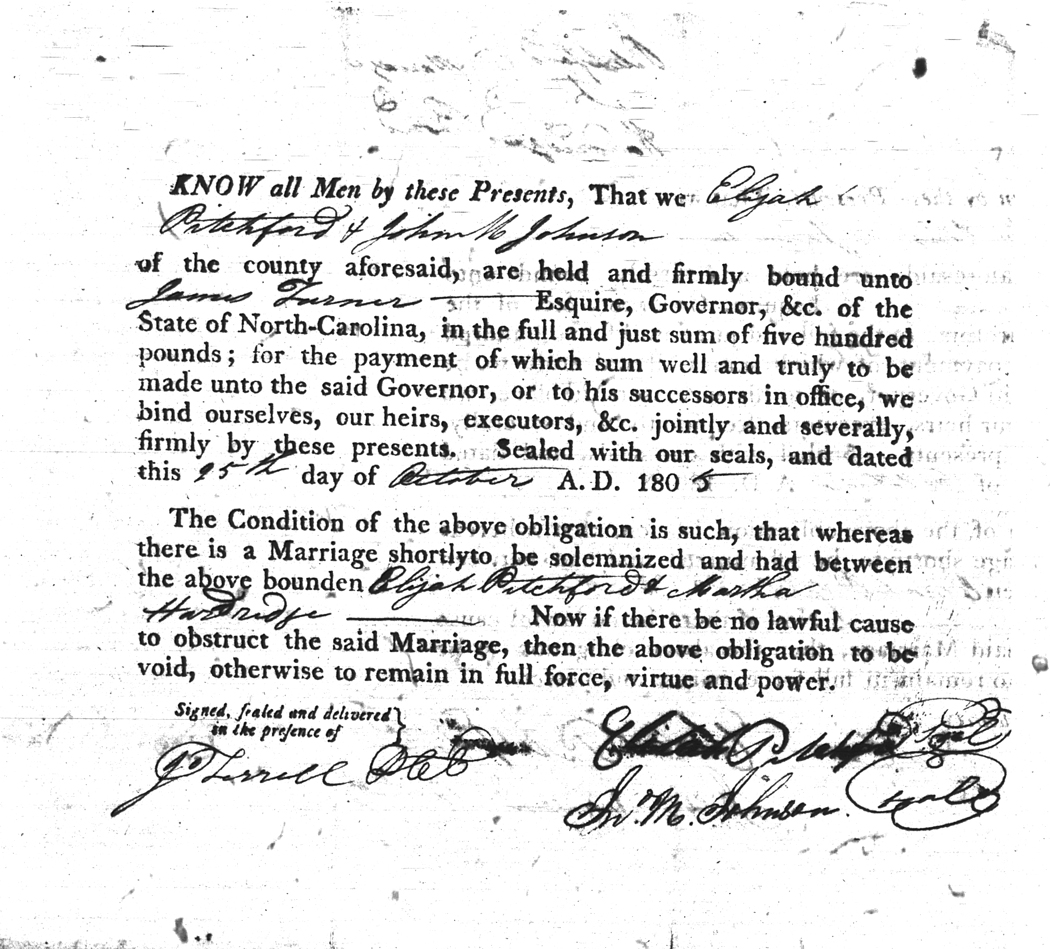 KNOW all Men by these Presents, That we Elijah
Pitchford & John M Johnson
of the county aforesaid, are held and firmly bound unto
James Turner Esquire, Governor, &c. of the
State of North-Carolina, in the full and just sum of five hundred
pounds; for the payment of which sum well and truly to be
made unto the said Governor, or to his successors in office, we
bind ourselves, our heirs, executors, &c. jointly and severally,
firmly by these presents. Sealed with our seals, and dated
this 25th day of October A. D. 1805
The Condition of the above obligation is such, that whereas
there is a Marriage shortlyto be solemnized and had between
the above bounden Elijah Pitchford & Martha
Now if there be no lawful cause
to obstruct the said Marriage, then the above obligation to be
void, otherwise to remain in full force, virtue and power.
Signed, sealed and delivered
in the presence of
Elijah Pitchford Seal
Jo Terrell
Jno. M. Johnson Seal